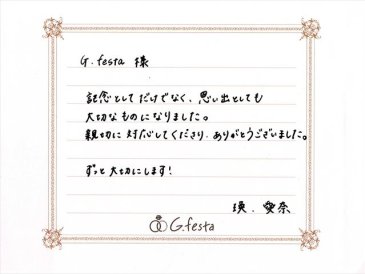 G.festa 様
記念としてだけでなく、思い出としても
大切なものになりました。
親切に対応してくださり、ありがとうございました。
ずっと大切にします!
瑛．愛奈
G.festa